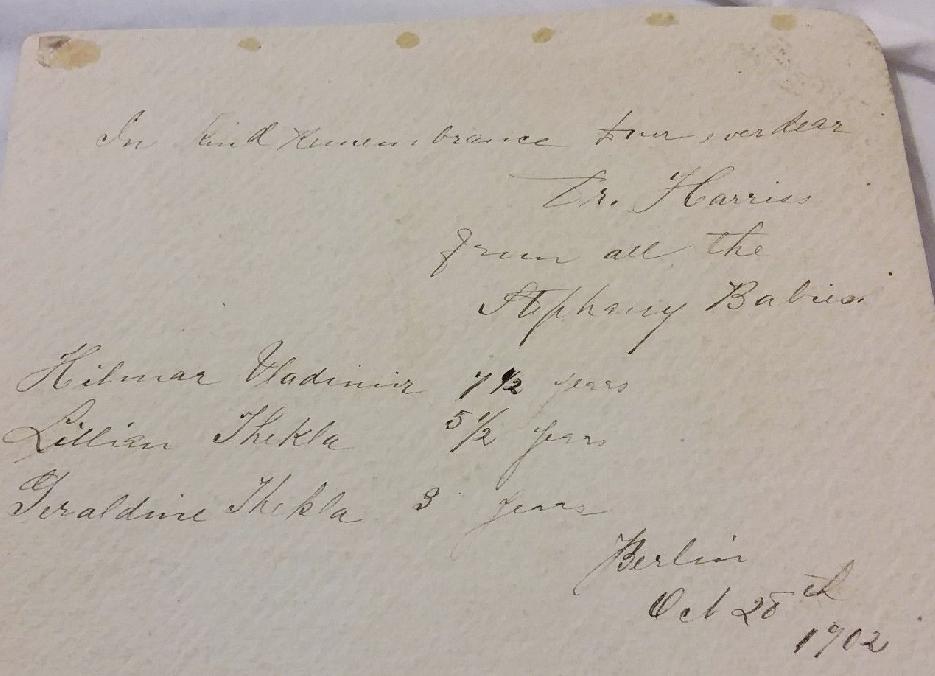 In kind remembrance four ever dear
Dr. Harriss
from all the
Stephany Babies
Hilmar Vladimir 7 1/2 years
Lillian Thekla 5 1/2 years
Geraldine Thekla 3 years
Berlin
Oct 28th
1902